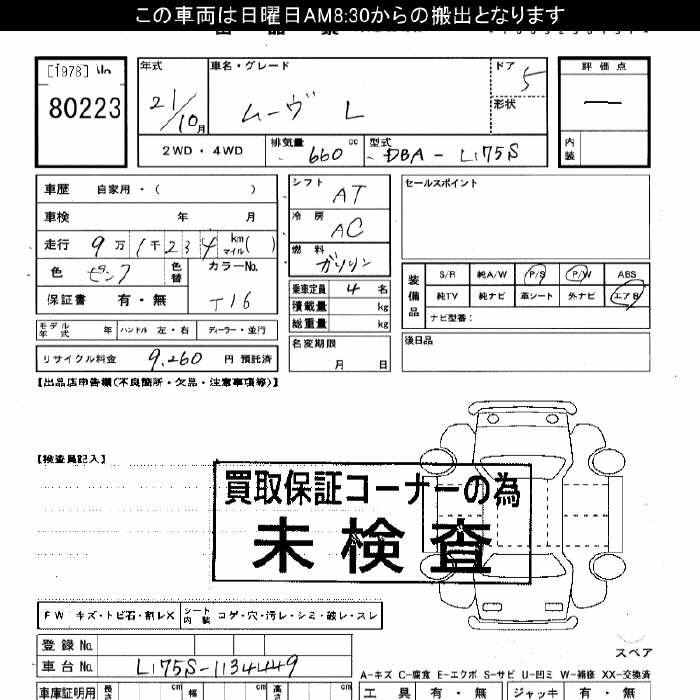 この車両は日曜日AM8:30からの搬出となります
[1978] No
80223
年式
21/10月
車名・グレード
ムーヴ L
ドア
5
形状
評価点
―
内装
2WD・4WD
排気量 660 cc
型式 DBA-L175S
車歴 自家用・( )
車検 年 月
走行 9万1千234 km マイル( )
色
色替
カラーNo.
T16
保証書 有・無
モデル年式 年
ハンドル 左・右
ディーラー・並行
リサイクル料金 9,260 円 預託済
シフト AT
冷房 AC
燃料 ガソリン
乗車定員 4 名
積載量 kg
総重量 kg
名変期限
月 日
セールスポイント
装備品
S/R 純A/W P/S P/W ABS
純TV 純ナビ 革シート 外ナビ エアB
ナビ型番:
後日品
【出品店申告欄(不良箇所・欠品・注意事項等)】
【検査員記入】
買取保証コーナーの為
未検査
FW キズ・トビ石・割レX
シート内装 コゲ・穴・汚レ・シミ・破レ・スレ
登録No.
車台No. L175S-1134449
スペア
A-キズ C-腐食 E-エクボ S-サビ U-凹ミ W-補修 XX-交換済
車庫証明用 長さ cm 幅 cm 高さ cm
工具 有・無 ジャッキ 有・無